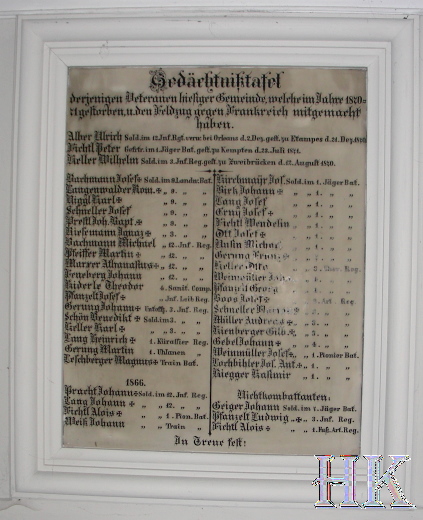 Gedächtnißtafel
derjenigen Veteranen hiesiger Gemeinde, welche im Jahre 1870=
71 gestorben, u. den Feldzug gegen Frankreich mitgemacht
haben.
Alber Ulrich Sold. im 12. Inf. Rgt. verw. bei Orleans d. 2. Dez. gest. zu Etampes d. 21. Dez. 1870
Fichtl Peter Gefrtr. im 1. Jäger Bat. gest. zu Kempten d. 23. Juli 1871.
Keller Wilhelm Sold. im 3. Inf. Reg. gest. zu Zweibrücken d. 17. August 1870.
Bachmann Josef Sold. im 9. Landw. Bat.
Langenwalder Rom. " " 9. " "
Niggl Karl " 9. " "
Schneller Josef " 9. " "
Prestl Joh. Bapt. " 9. " "
Kiesemann Ignaz " 3. " "
Bachmann Michael " 12. Inf. Reg.
Pfeiffer Martin " 12. " "
Marxer Athanasius " 12. " "
Feneberg Johann " 12. " "
Riderle Theodor 4. Sanit. Comp.
Pfanzelt Josef " Inf. Leib Reg.
Gering Johann Unteroff. 2. Inf. Reg.
Schön Benedikt Sold. im 3. " "
Keller Karl " " 3. " "
Lang Heinrich 1. Küraßier Reg.
Gerung Martin 1. Uhlanen "
Leschberger Magnus Train Bat.
1866.
Bracht Johann Sold. im 12. Inf. Reg.
Lang Johann " " 12. " "
Fichtl Alois " " 1. Pion. Bat.
Weiß Johann " " Train "
Kirchmayr Jos. Sold. im 1. Jäger Bat.
Birk Johann " " 1. " "
Lang Josef " " 1. " "
Josef " " 1. " "
Fichtl Wendelin " " 1. " "
Ott Josef " " 1. " "
Michael
Gerung
Keller Otto Reg.
Weinmüller
Pfanzelt Georg
Josef Art. Reg.
Schneller
Müller Andreas " " 5. " "
Rienberger Gilb. " 5. " "
Gebel Johann " 4. " "
Weinmüller Josef " " 1. Pionier Bat.
Lochbihler Jos. Ant. " 1. " "
Riegger Kasimir " " 1. " "
Nichtkombattanten.
Geiger Johann Sold. im 7. Jäger Bat.
Pfanzelt Ludwig " " 3. Inf. Reg.
Fichtl Alois " " 1. Fuß. Art. Reg.
In Treue fest!
HK